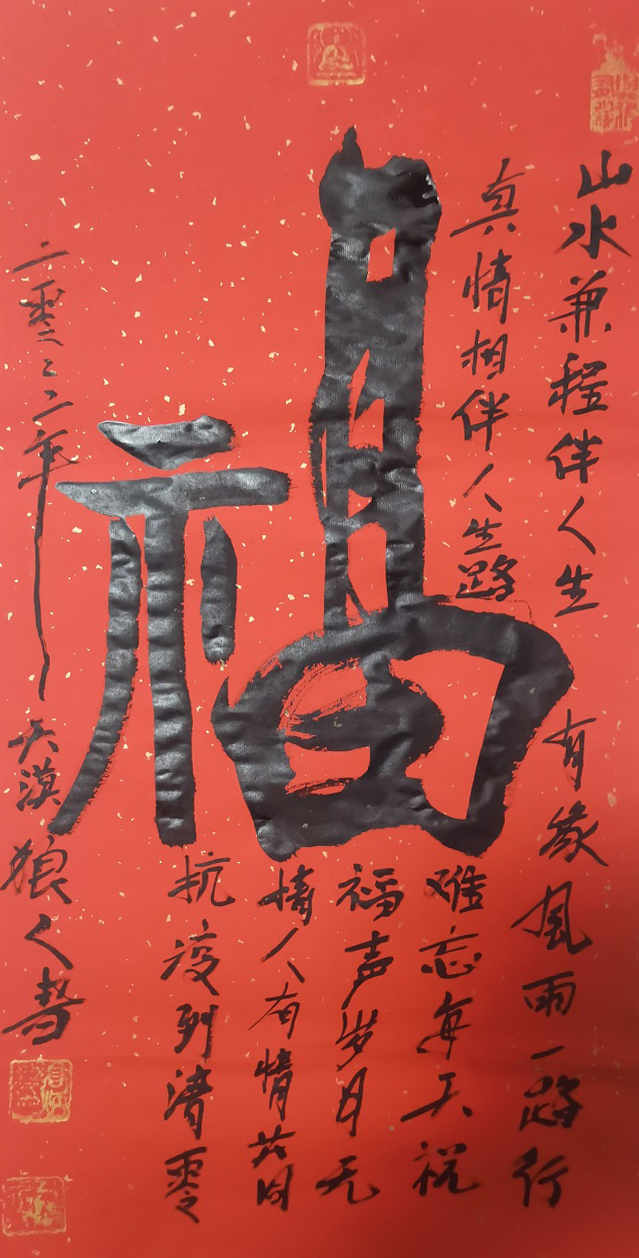 山水兼程伴人生
有缘风雨一路行
真情相伴人生路
难忘每天祝
福声岁月无
情人有情共同
抗疫到清零
福
二零二二年
大漠狼人书